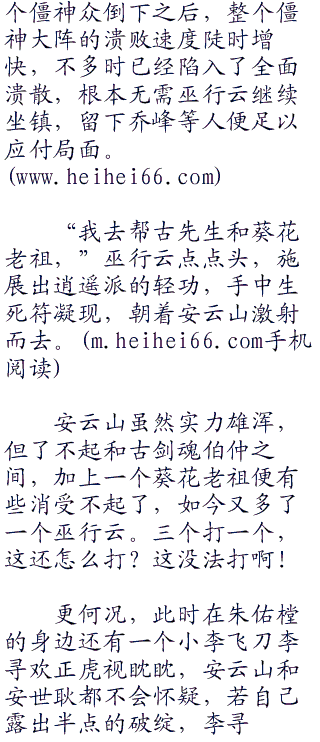 个僵神众倒下之后，整个僵
神大阵的溃败速度陡时增
快，不多时已经陷入了全面
溃散，根本无需巫行云继续
坐镇，留下乔峰等人便足以
应付局面。
(www.heihei66.com)
“我去帮古先生和葵花
老祖，”巫行云点点头，施
展出逍遥派的轻功，手中生
死符凝现，朝着安云山激射
而去。(m.heihei66.com手机
阅读)
安云山虽然实力雄浑，
但了不起和古剑魂伯仲之
间，加上一个葵花老祖便有
些消受不起了，如今又多了
一个巫行云。三个打一个，
这还怎么打？这没法打啊！
更何况，此时在朱佑樘
的身边还有一个小李飞刀李
寻欢正虎视眈眈，安云山和
安世耿都不会怀疑，若自己
露出半点的破绽，李寻